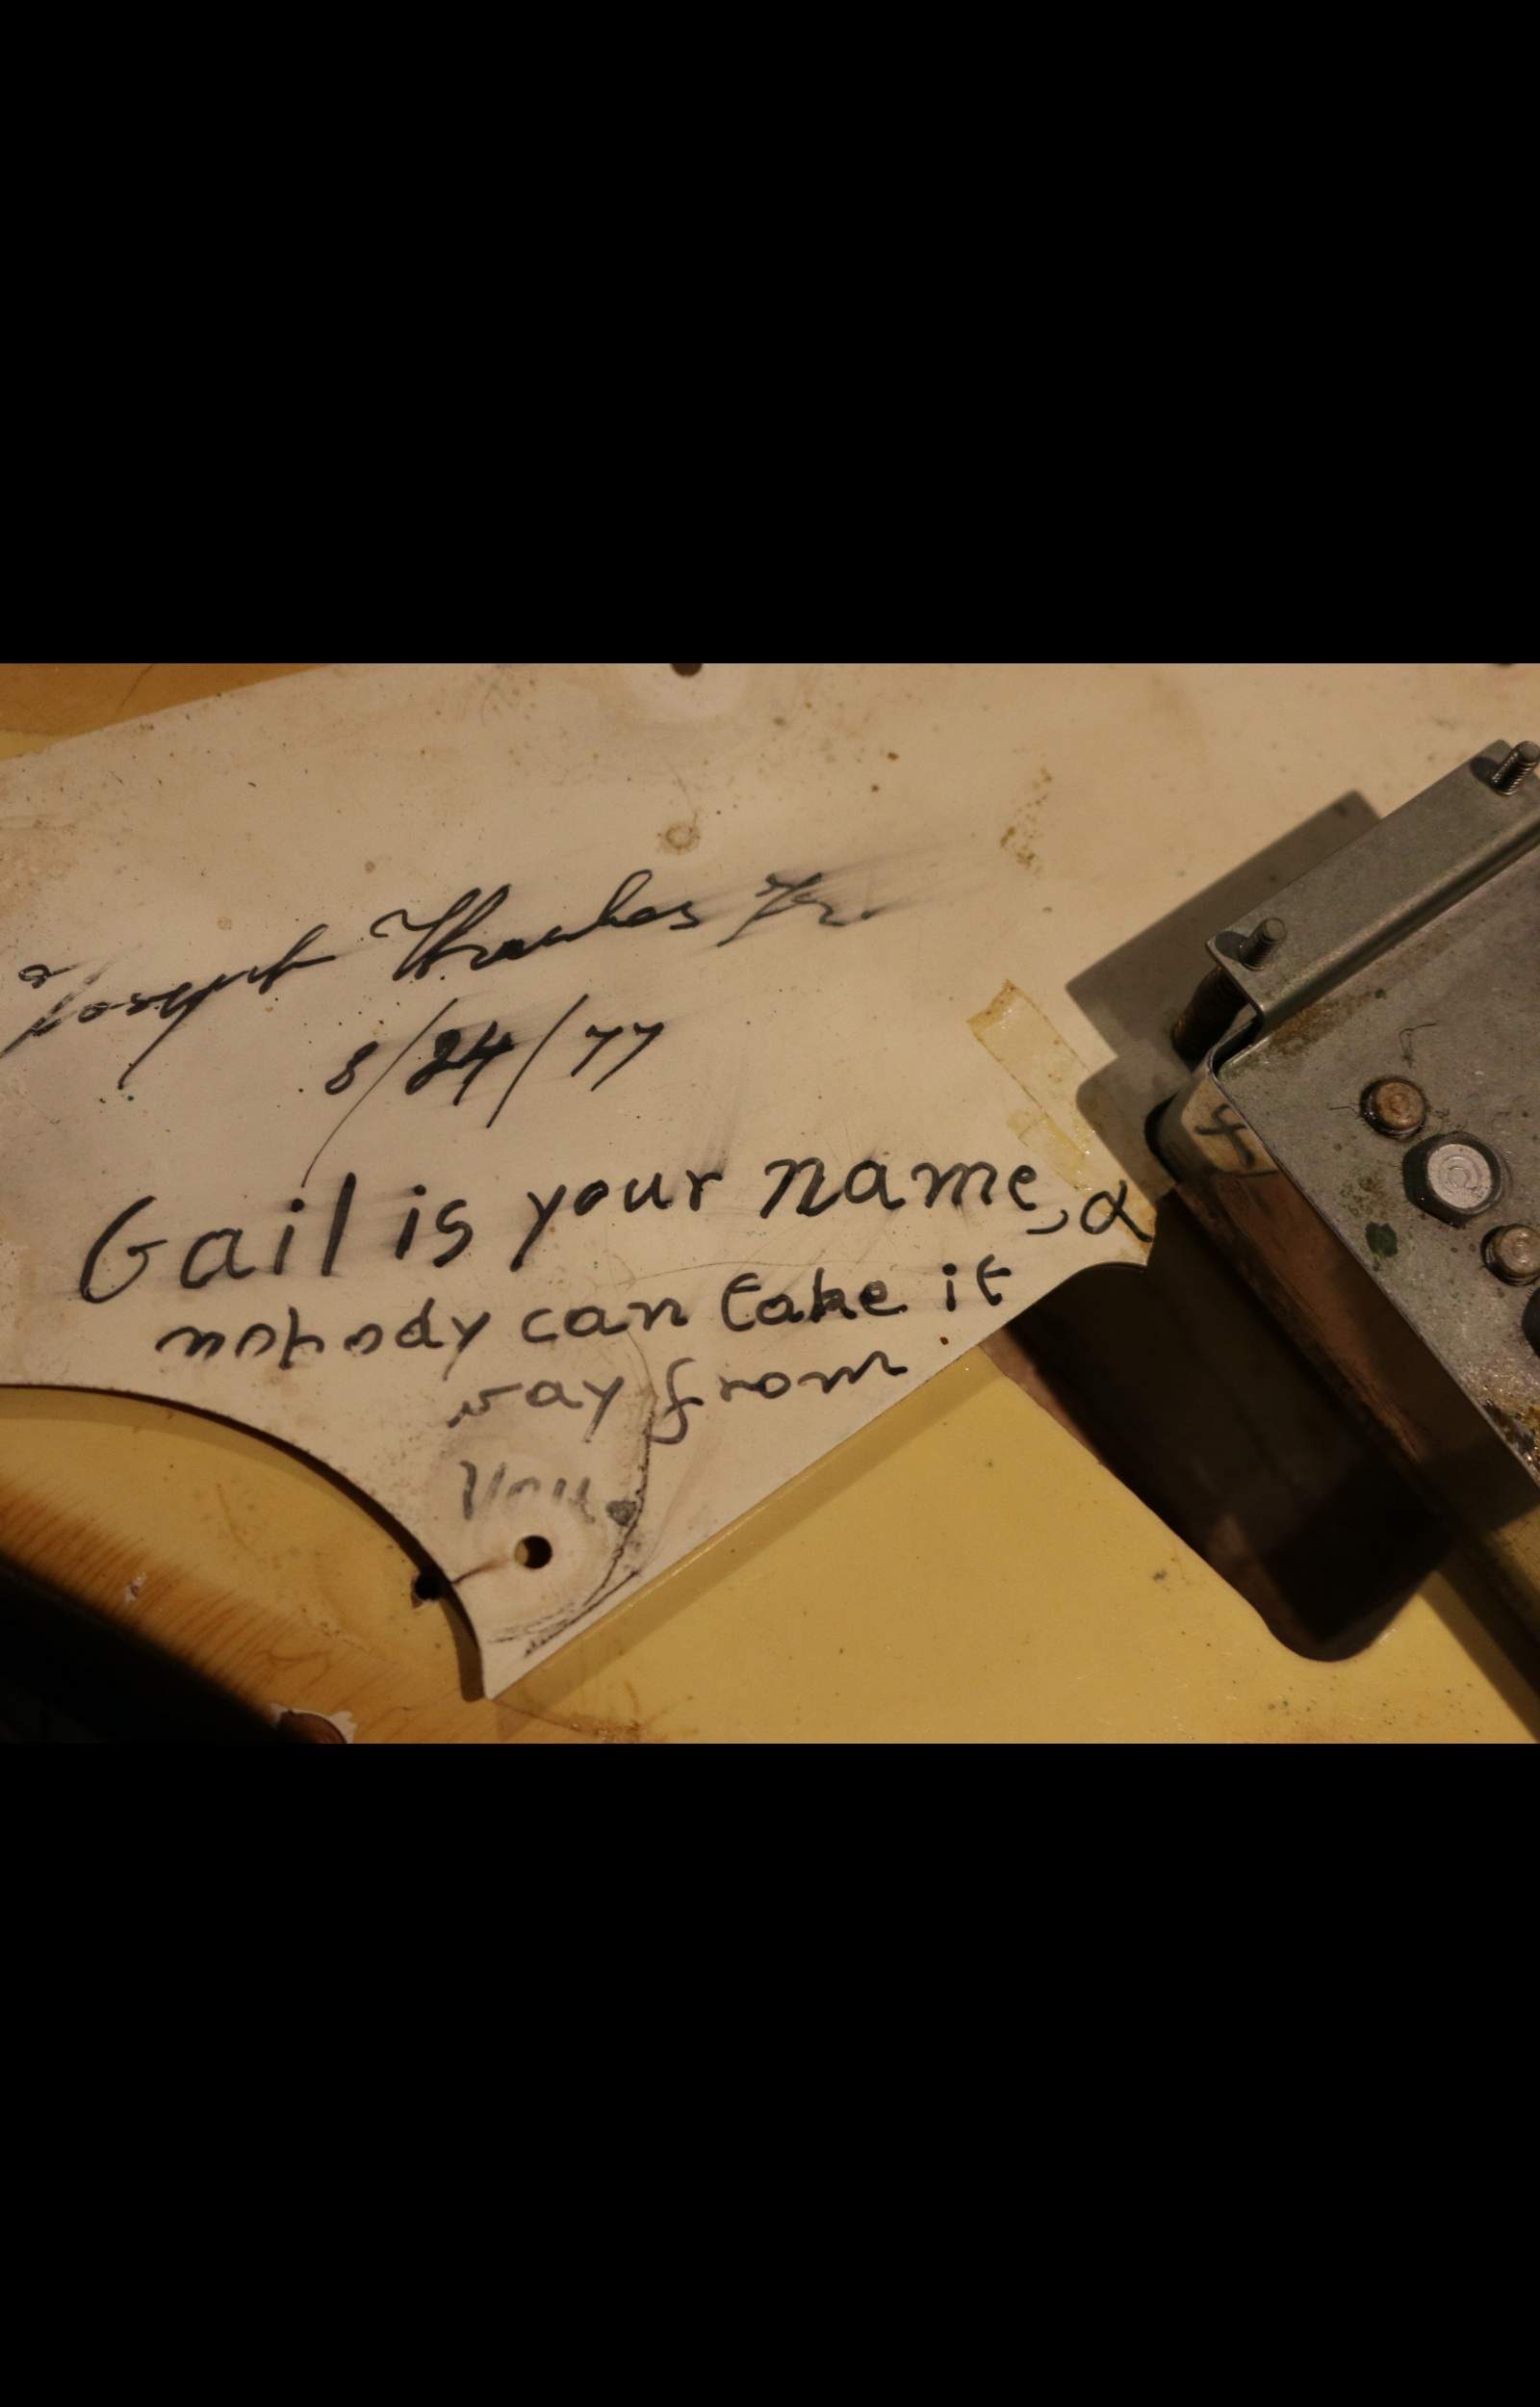 Joseph Jr.
8/24/77
Gail is your name, &
nobody can take it
way from
you.